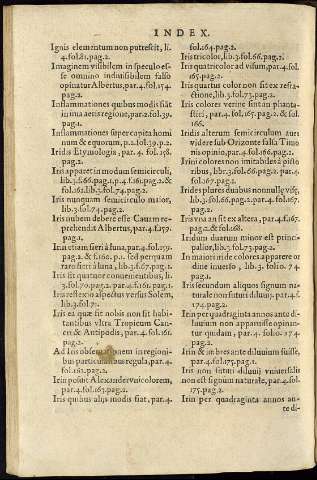 INDEX.
Ignis elementum non putrescit, li.
4.fol.81.pag.2.
Imaginem visibilem in speculo es-
se omnino indiuisibilem falso
opinatur Albertus, par.4.fol.154.
pag.2.
Inflammationes quibus modis fiāt
in ima aeris regione, par.2.fol.39.
pag.1.
Inflammationes super capita homi
num & equorum, p.2.fol.39.p.2.
Iridis Etymologia, par.4. fol.158.
pag.2.
Iris apparet in modum semicirculi,
lib.3.f.66.pag.1.p.4.f.161.pag.2.&
fol.162.lib.3.fol.74.pag.2.
Iris nunquam semicirculo maior,
lib.3.fol.74.pag.2.
Iris nubem debere esse Cauam re-
prehendis Albertus, par.4.f.157.
pag.1.
Irin etiam fieri à luna, par.4.fol.159.
pag.2. & f.160. p.1. sed perquam
raro fieri à luna, lib.3.f.67.pag.1.
Iris fit quatuor conuenientibus, li.
3.fol.70.pag.2. par.4.fol.161.pag.1.
Iris reflexio aspectus versus Solem,
lib.3.fol.71.
Iris ea quæ fit nobis non fit habi-
tantibus vltra Tropicum Can-
cri & Antipodis, par.4.fol.161.
pag.2.
Ad Iris obseruationem in regioni-
bus particularibus regula, par.4.
fol.162.pag.2.
Irin posuit Alexander vnicolorem,
par.4.fol.163.pag.2.
Iris quibus alijs modis fiat, par.4.
fol.164.pag.2.
Iris tricolor, lib.3.fol.66.pag.2.
Iris quatricolor ad visum, par.4.fol.
165.pag.2.
Iris quartus color non fit ex refra-
ctione, lib.3.fol.73.pag.2.
Iris colores verine sint an phanta-
stici, par.4. fol.165.pag.2. & fol.
166.
Iridis alterum semicirculum aut
videre sub Orizonte falsa Timo
nis opinio, par.4.fol.166.pag.2.
Irini colores non imitabiles à picto
ribus, libr.3.fol.66.pag.2. par.4.
fol.167.pag.2.
Irides plures duabus nonnullę visę,
lib.3.fol.66.pag.2. par.4.fol.167.
pag.2.
Iris vna an sit ex altera, par.4.f.167.
pag.2.& fol.168.
Iridum duarum minor est princi-
palior, lib.3.fol.73.pag.2.
In maiori iride colores apparere or
dine inuerso, lib.3. folio.74.
pag.1.
Iris secundum aliquos signum na-
turale non futuri diluuij, par.4.f.
174.pag.2.
Irin per quadraginta annos ante di-
luuium non apparuisse opinan-
tur quidam, par.4. folio.174.
pag.2.
Irin & imbres ante diluuium fuisse,
par.4.fol.175.pag.1.
Iris non futuri diluuij vniuersalis
non est signum naturale, par.4.fol.
175.pag.2.
Irin per quadraginta annos an-
te di-